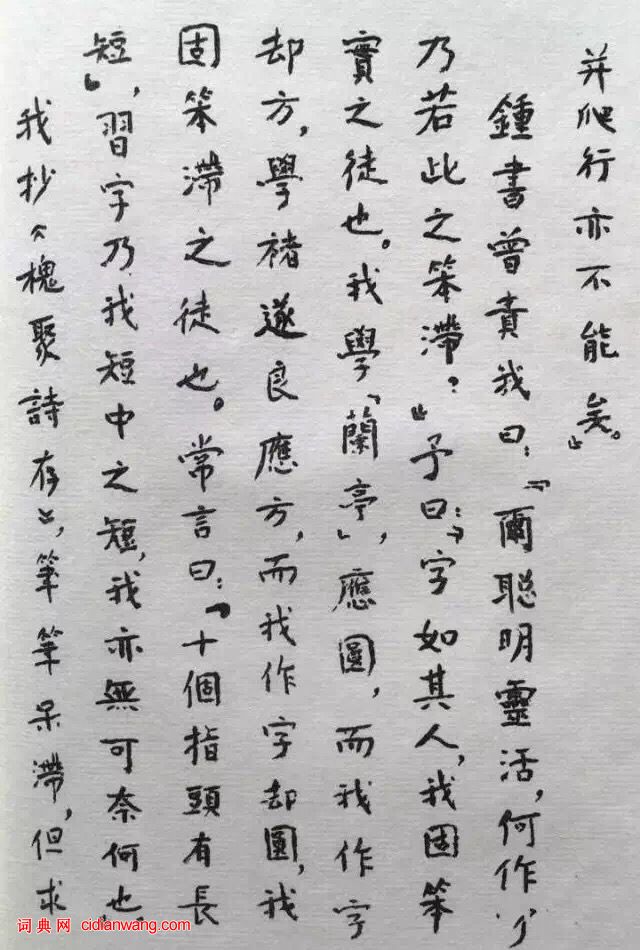 并爬行亦不能矣』。
鍾書曾責我曰：『爾聰明靈活，何作字
乃若此之笨滯？』予曰：『字如其人，我固笨
實之徒也。我學『蘭亭』，應圓，而我作字
却方，學褚遂良應方，而我作字却圓，我
固笨滯之徒也。常言曰：『十個指頭有長
短』，習字乃我短中之短，我亦無可奈何也。
我抄《槐聚詩存》，筆筆呆滯，但求
词典网 cidianwang.com